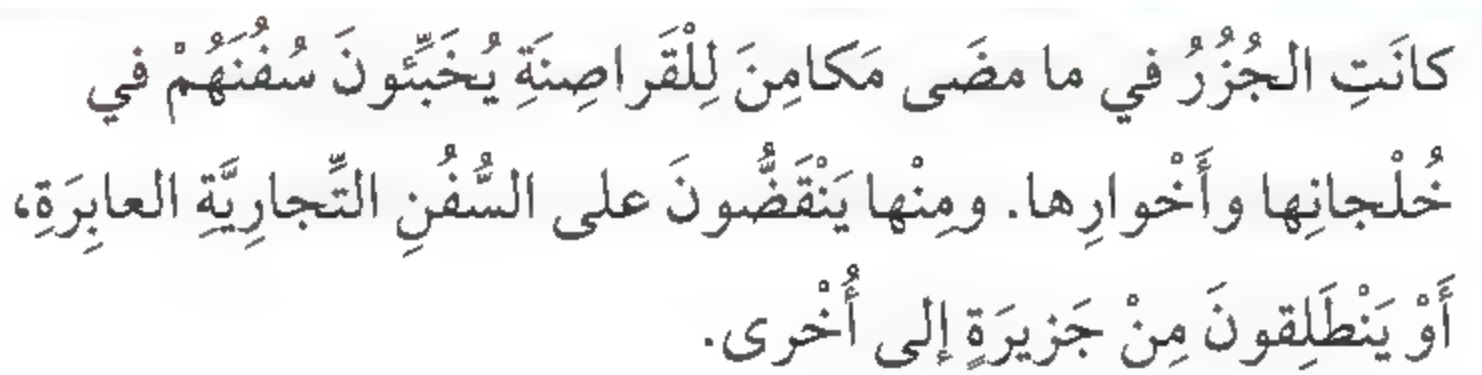 كانَتِ الجُزُرُ في ما مضَى مَكامِنَ لِلْقَراصِنَةِ يُخَبِّئونَ سُفُنَهُمْ في
خُلْجانِها وأَخْوارِها. ومِنْها يَنْقَضُّونَ على السُّفُنِ التِّجارِيَّةِ العابِرَةِ،
أَوْ يَنْطَلِقونَ مِنْ جَزيرَةٍ إلى أُخْرى.